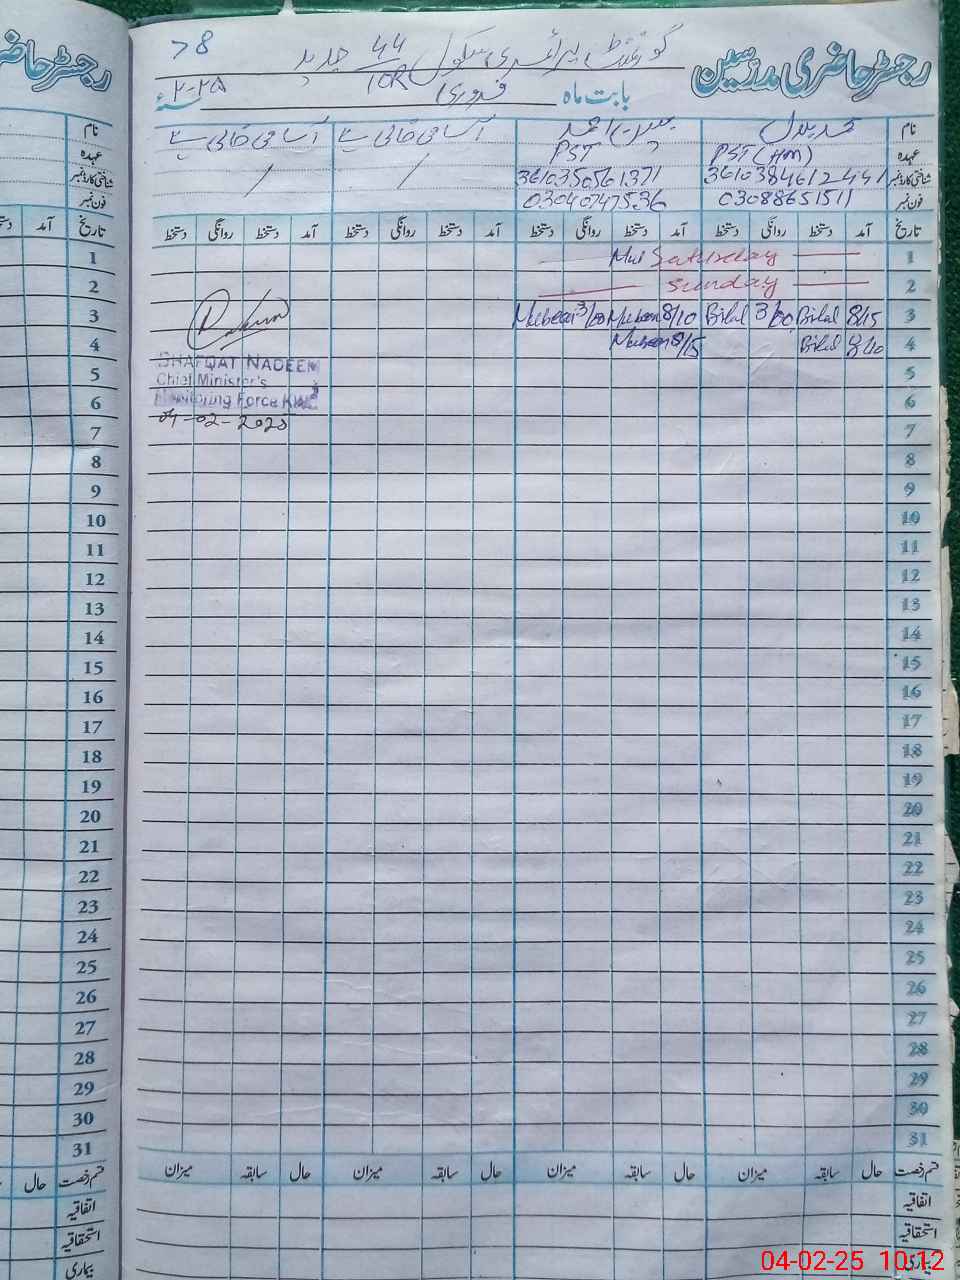 رجسٹر حاضری مدرسین
گورنمنٹ پرائمری سکول 44/10R جدید
78
بابت ماہ فروری ۲۰۲۵
نام محمد بلال مبین احمد آسامی خالی ہے آسامی خالی ہے
عہدہ PST (HM) PST
شناختی کارڈ نمبر 3610384612441 3610350561371 / /
فون نمبر 03088651511 03040747536
تاریخ آمد دستخط روانگی دستخط آمد دستخط روانگی دستخط آمد دستخط روانگی دستخط آمد دستخط روانگی دستخط
1 Saturday
2 Sunday
3 8/15 Bilal 3/00 Bilal 8/10 Mubeen 3/00 Mubeen
4 8/10 Bilal 8/15 Mubeen
5
6
7
8
9
10
11
12
13
14
15
16
17
18
19
20
21
22
23
24
25
26
27
28
29
30
31
SHAFQAT NADEEM
Chief Minister's
Monitoring Force KWL
04-02-2025
قسم رخصت حال سابقہ میزان حال سابقہ میزان حال سابقہ میزان حال سابقہ میزان
اتفاقیہ
استحقاقیہ
بیماری
رجسٹر حاضری
نام
عہدہ
شناختی کارڈ نمبر
فون نمبر
تاریخ آمد
1
2
3
4
5
6
7
8
9
10
11
12
13
14
15
16
17
18
19
20
21
22
23
24
25
26
27
28
29
30
31
قسم رخصت حال
اتفاقیہ
استحقاقیہ
بیماری
04-02-25 10:12